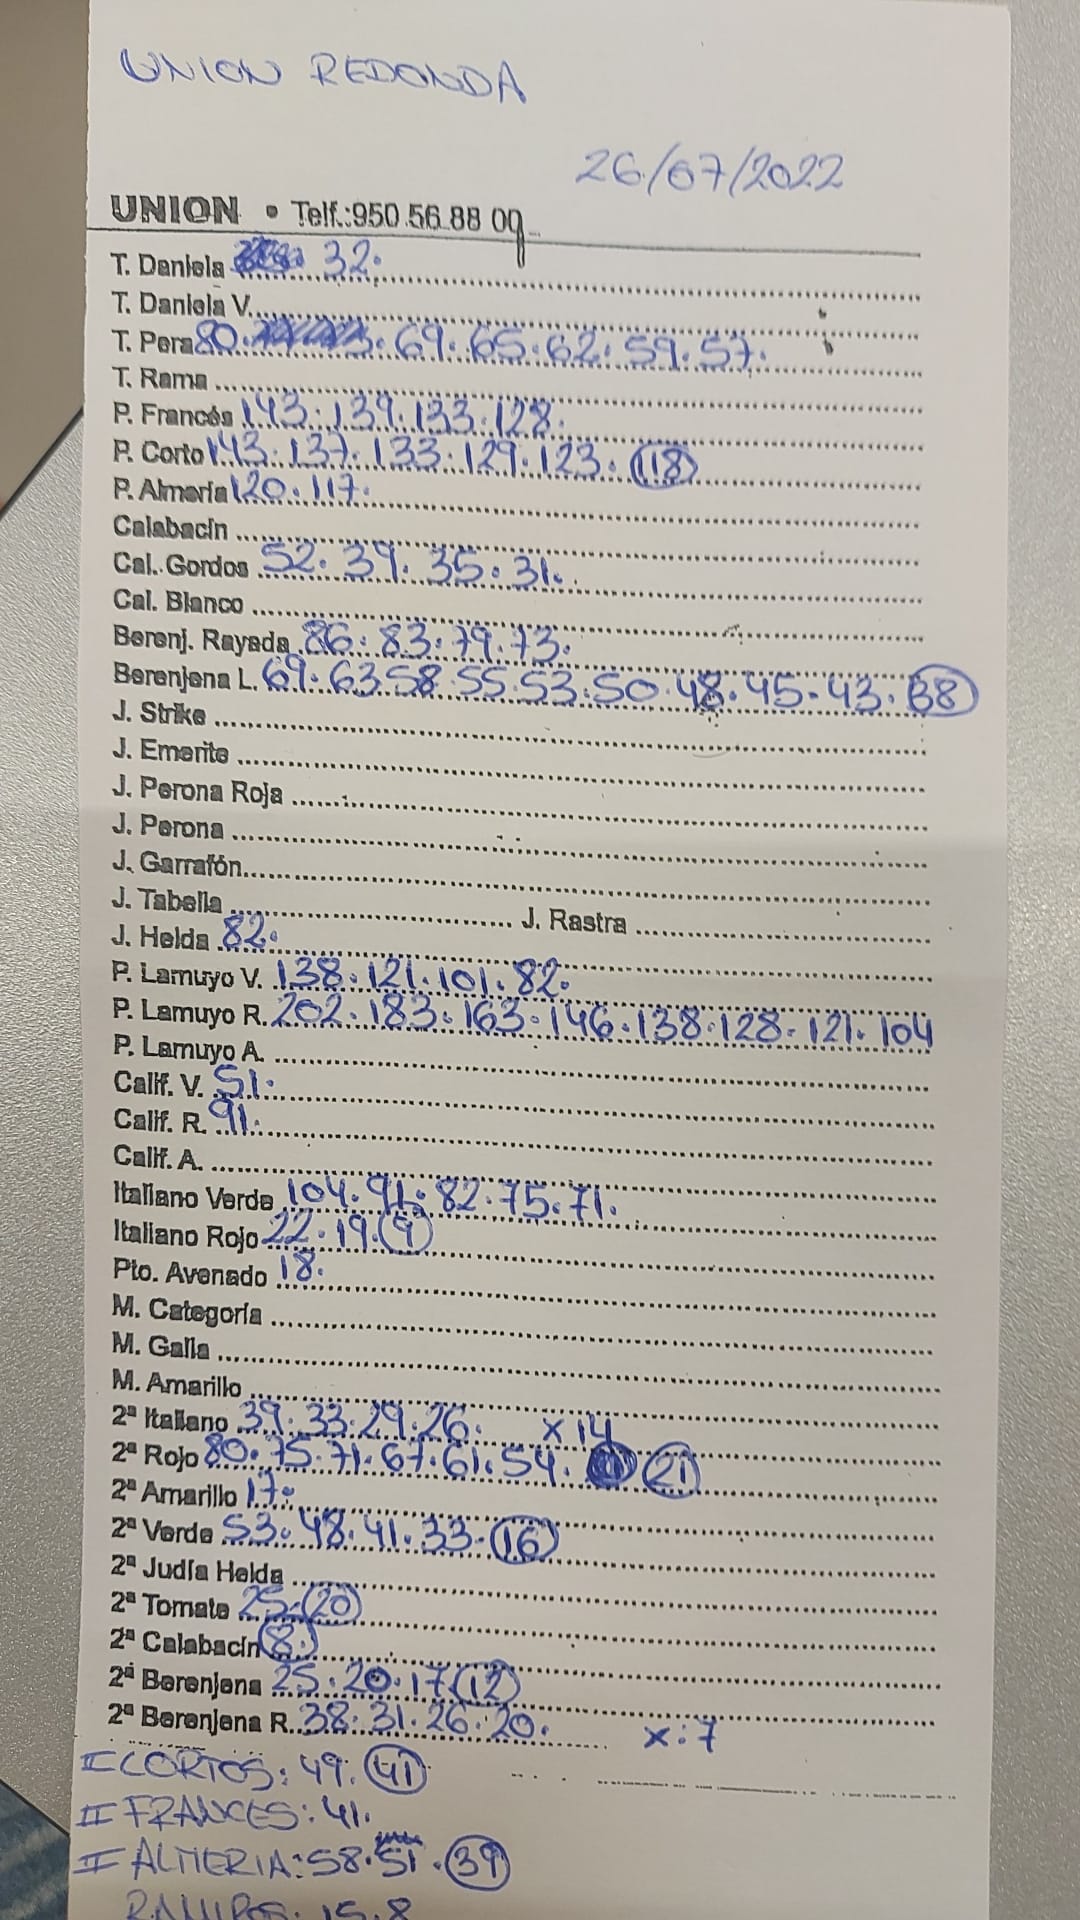 UNION REDONDA
26/07/2022
UNION • Telf.:950.56.88 09
T. Daniela 32.
T. Daniela V.
T. Pera 80. 69. 65. 62. 59. 57.
T. Rama
P. Francés 143. 139. 133. 128.
P. Corto 143. 137. 133. 129. 123. (118)
P. Almería 120. 117.
Calabacín
Cal. Gordos 52. 39. 35. 31.
Cal. Blanco
Berenj. Rayada 86. 83. 79. 73.
Berenjena L. 69. 63. 58. 55. 53. 50. 48. 45. 43. (38)
J. Strike
J. Emerite
J. Perona Roja
J. Perona
J. Garrafón
J. Tabella J. Rastra
J. Helda 82.
P. Lamuyo V. 138. 121. 101. 82.
P. Lamuyo R. 202. 183. 163. 146. 138. 128. 121. 104
P. Lamuyo A.
Calif. V. 51.
Calif. R. 91.
Calif. A.
Italiano Verde 104. 91. 82. 75. 71.
Italiano Rojo 22. 19. (9)
Pto. Avenado 18.
M. Categoría
M. Galia
M. Amarillo
2ª Italiano 39. 33. 29. 26. x 14
2ª Rojo 80. 75. 71. 67. 61. 54. (21)
2ª Amarillo 17.
2ª Verde 53. 48. 41. 33. (16)
2ª Judía Helda
2ª Tomate 25. (20)
2ª Calabacín (8.)
2ª Berenjena 25. 20. 17. (12)
2ª Berenjena R. 38. 31. 26. 20. x: 7
II CORTOS: 49. (41)
II FRANCES: 41.
II ALMERIA: 58. 51. (39)
15. 8